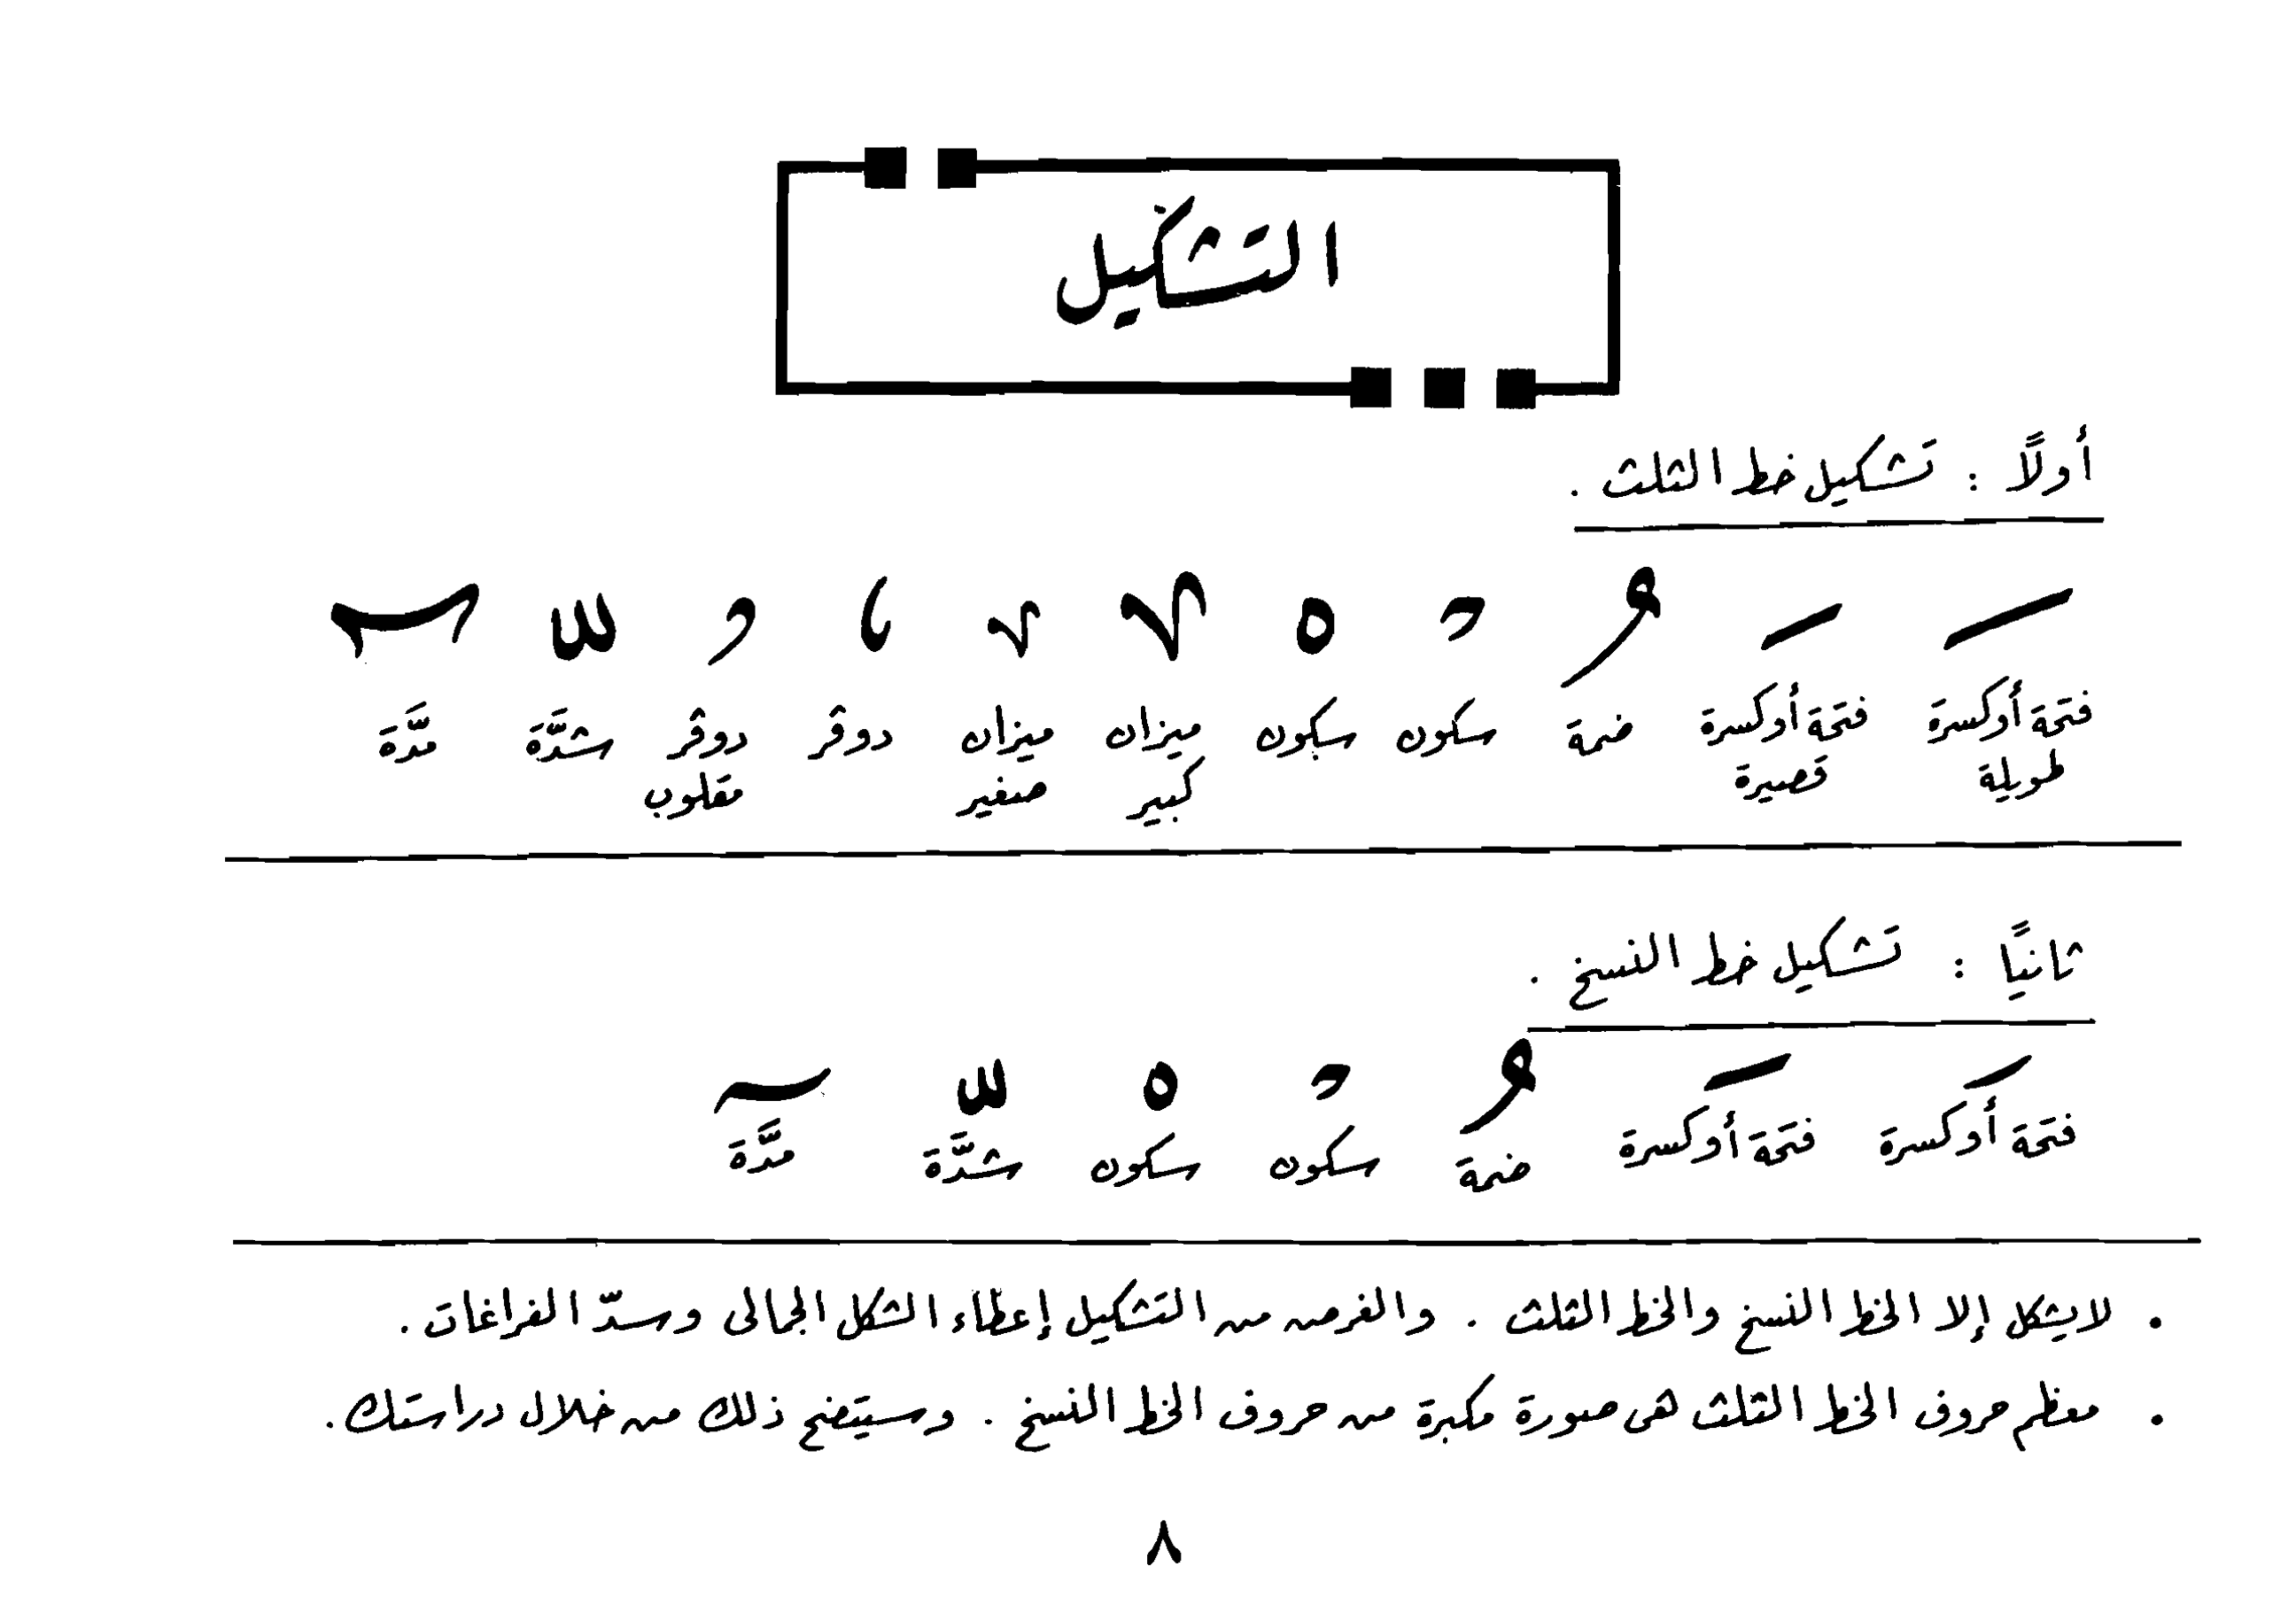 التشكيل
أولاً : تشكيل خط الثلث .
فتحة أوكسرة فتحة أوكسرة ضمة سكون سكون ميزان ميزان دوڤر دوڤر شدَّة مدَّة
طويلة قصيرة كبير صغير مقلوب
ثانيًا : تشكيل خط النسخ .
فتحة أوكسرة فتحة أوكسرة ضمة سكون سكون شدَّة مدَّة
• لايشكل إلا الخط النسخ والخط الثلث . والغرض من التشكيل إعطاء الشكل الجمالى وسدّ الفراغات .
• معظم حروف الخط الثلث هى صورة مكبرة من حروف الخط النسخ . وسيتضح ذلك من خلال دراستك .
٨